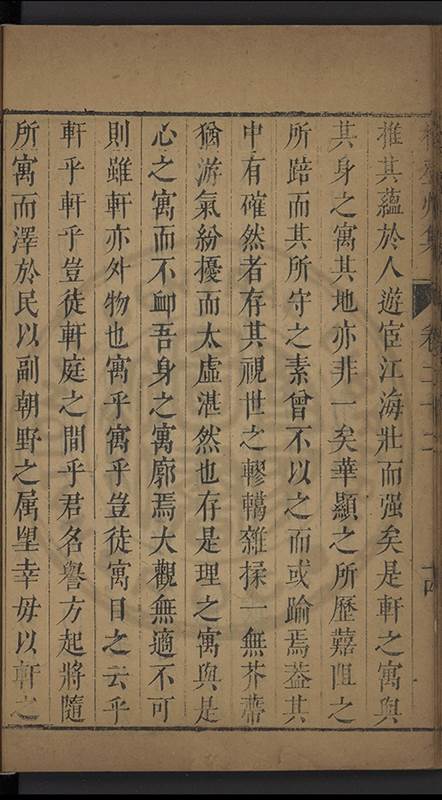 推其蘊於人遊宦江海壯而强矣是軒之寓與
其身之寓其地亦非一矣華顯之所歷囏阻之
所踣而其所守之素曾不以之而或踰焉葢其
中有確然者存其視世之轇轕雜揉一無芥蔕
猶游氣紛擾而太虛湛然也存是理之寓與是
心之寓而不䘏吾身之寓廓焉大觀無適不可
則雖軒亦外物也寓乎寓乎豈徒寓目之云乎
軒乎軒乎豈徒軒庭之間乎君名譽方起將隨
所寓而澤於民以副朝野之属朢幸毋以軒之